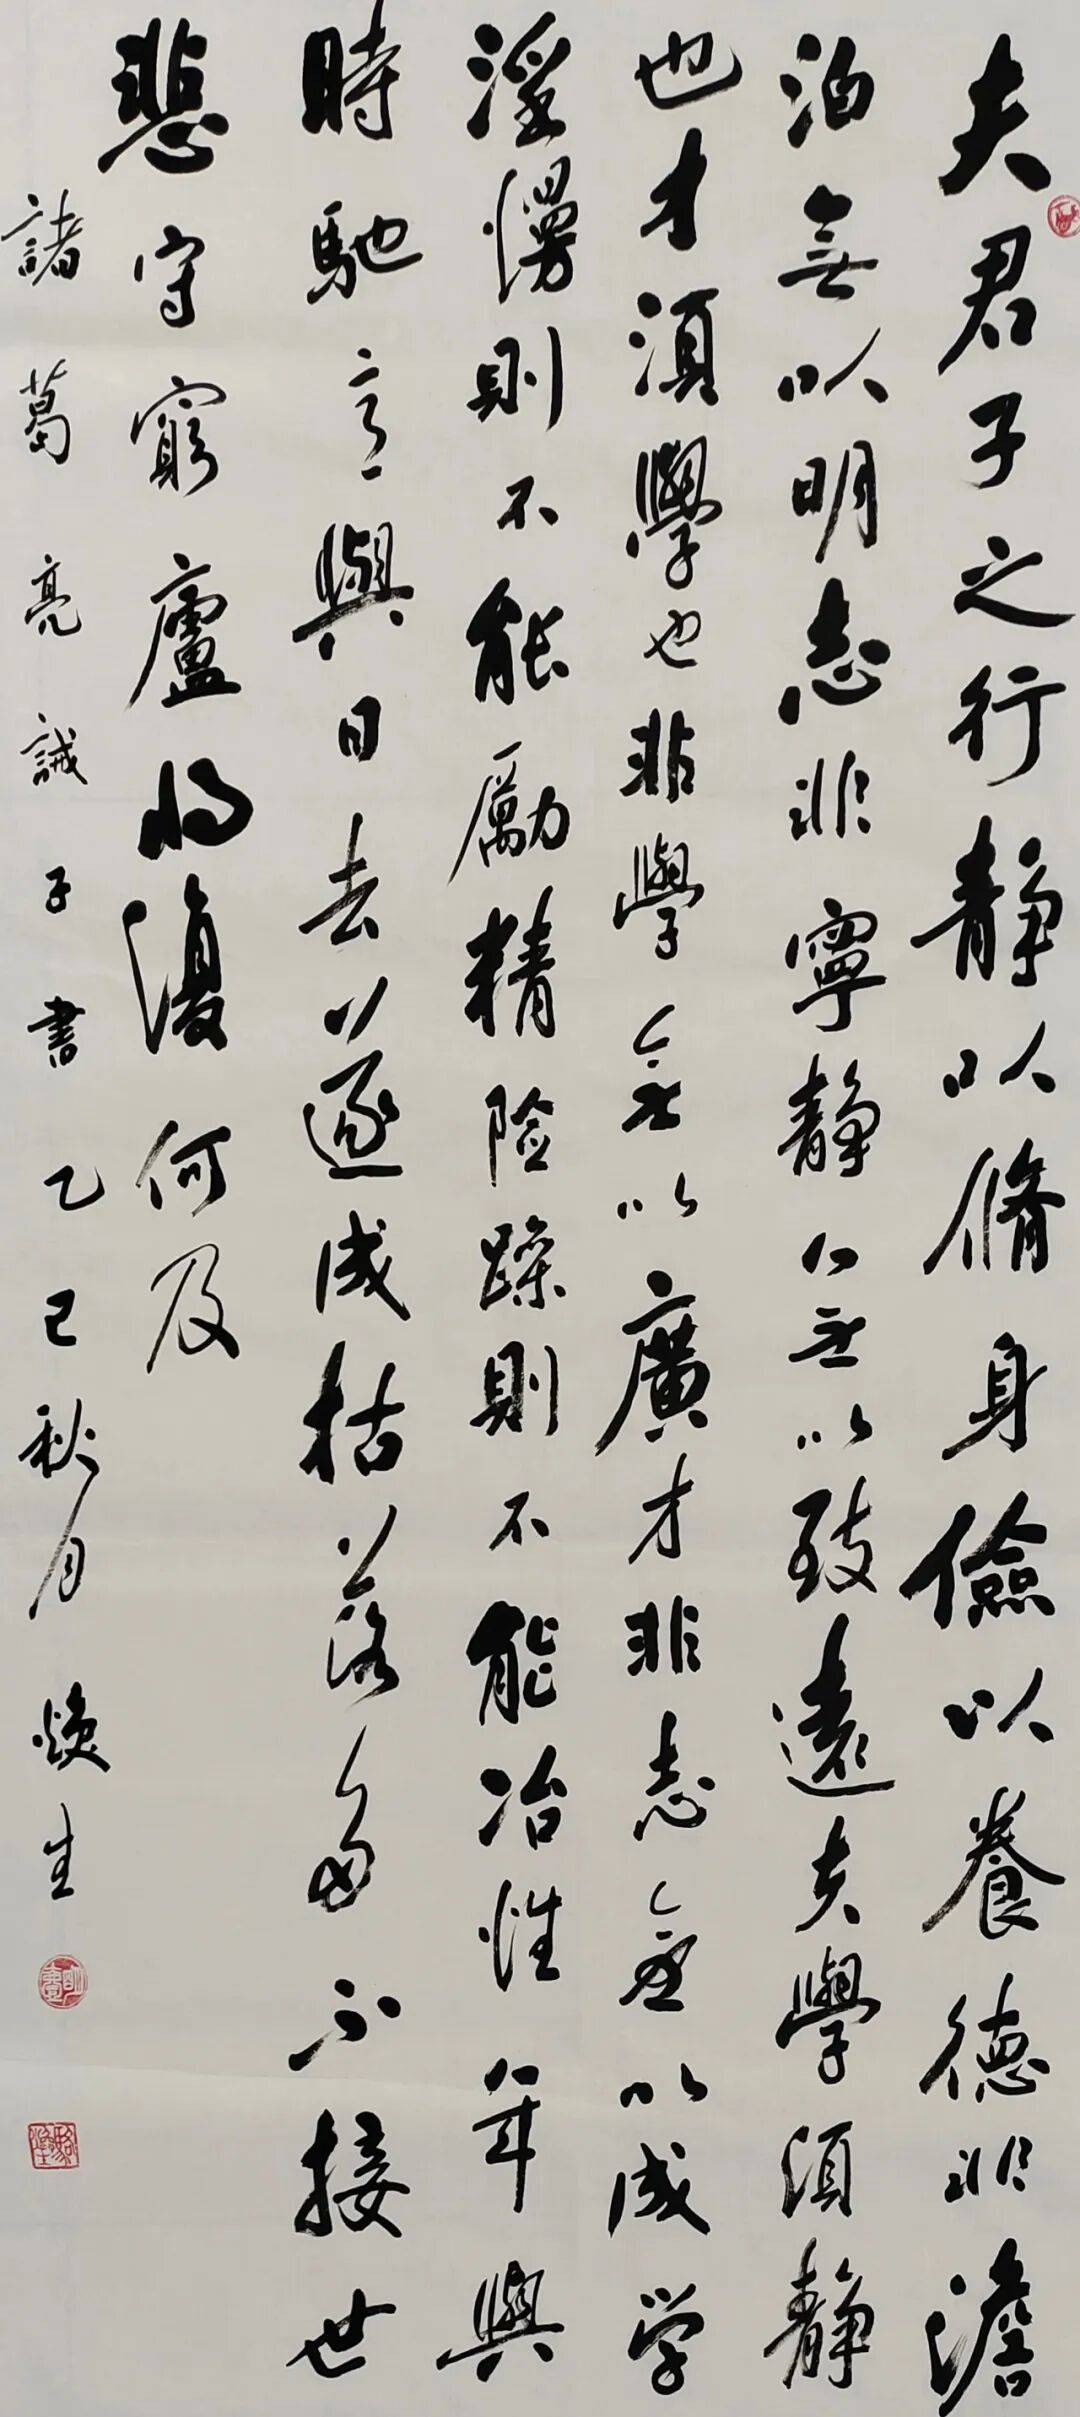 夫君子之行静以脩身儉以養德非澹
泊無以明志非寧静無以致遠夫學須静
也才須學也非學無以廣才非志無以成学
淫慢則不能勵精险躁則不能冶性年與
時馳意與日去遂成枯落多不接世
悲守窮廬将復何及
諸葛亮誡子書乙巳秋月焕生